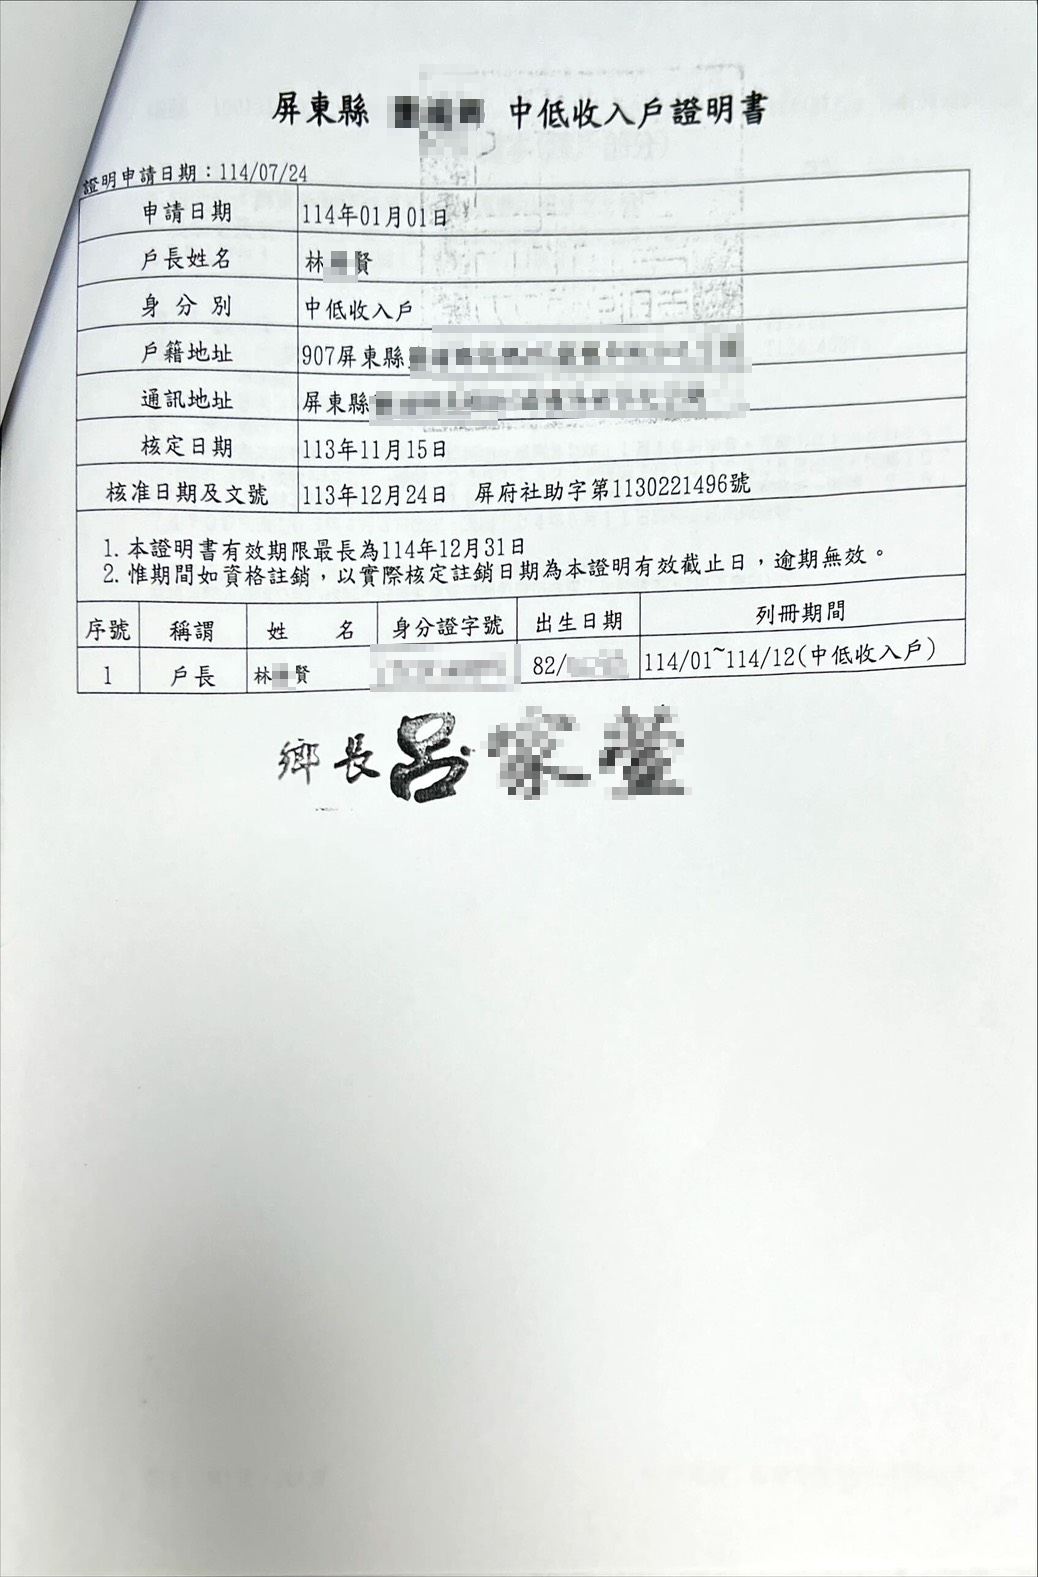 屏東縣 中低收入戶證明書
證明申請日期：114/07/24
申請日期 114年01月01日
戶長姓名 林 賢
身分別 中低收入戶
戶籍地址 907屏東縣
通訊地址 屏東縣
核定日期 113年11月15日
核准日期及文號 113年12月24日 屏府社助字第1130221496號
1. 本證明書有效期限最長為114年12月31日
2. 惟期間如資格註銷，以實際核定註銷日期為本證明有效截止日，逾期無效。
序號 稱謂 姓 名 身分證字號 出生日期 列冊期間
1 戶長 林 賢 82/ 114/01~114/12(中低收入戶)
鄉長 呂